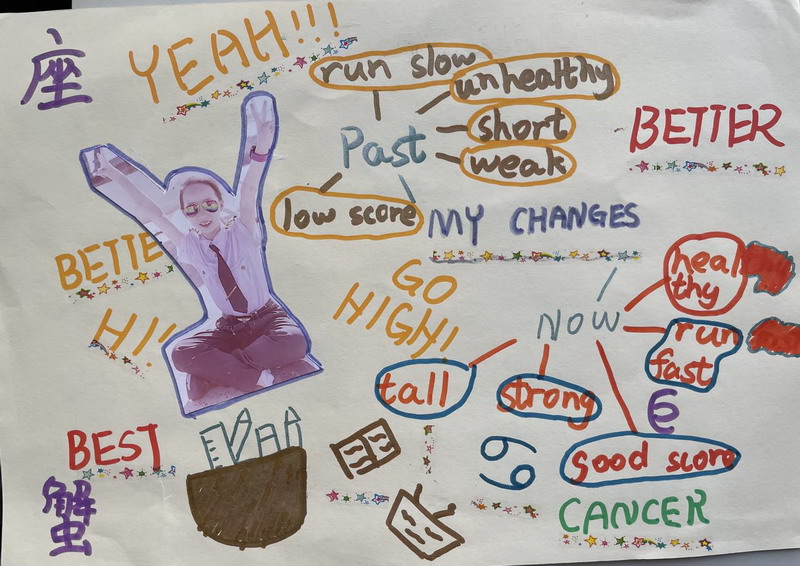 座
YEAH!!!
run slow
unhealthy
short
weak
Past
low score
BETTER
MY CHANGES
BETTE
HI!
GO
HIGH!
NOW
heal
thy
run
fast
tall
strong
good score
BEST
蟹
CANCER